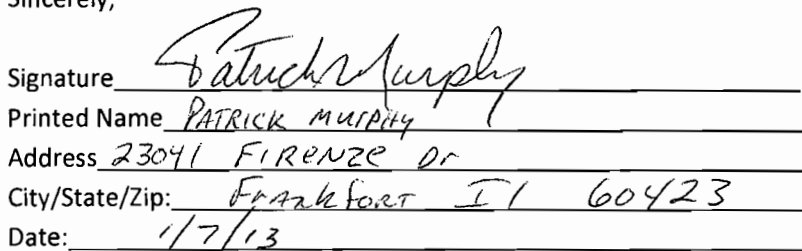 Sincerely,
Signature Patrick Murphy
Printed Name PATRICK MURPHY
Address 23041 FIRENZE Dr
City/State/Zip: Frankfort Il 60423
Date: 1/7/13